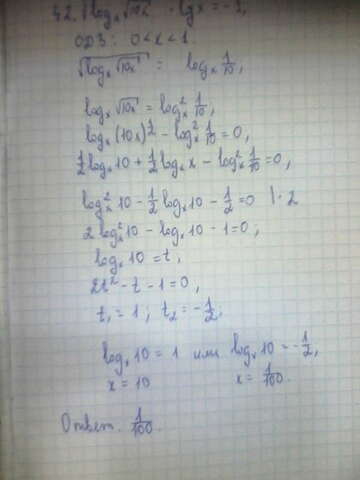 42. √log_x √10x · lg x = -1,
ОДЗ: 0 < x < 1.
√log_x √10x = log_x 1/10,
log_x √10x = log_x² 1/10,
log_x (10x)^½ - log_x² 1/10 = 0,
½ log_x 10 + ½ log_x x - log_x² 1/10 = 0,
log_x² 10 - ½ log_x 10 - ½ = 0 | · 2
2 log_x² 10 - log_x 10 - 1 = 0,
log_x 10 = t,
2t² - t - 1 = 0,
t₁ = 1, t₂ = -½,
log_x 10 = 1 или log_x 10 = -½,
x = 10 x = 1/100.
Ответ. 1/100.